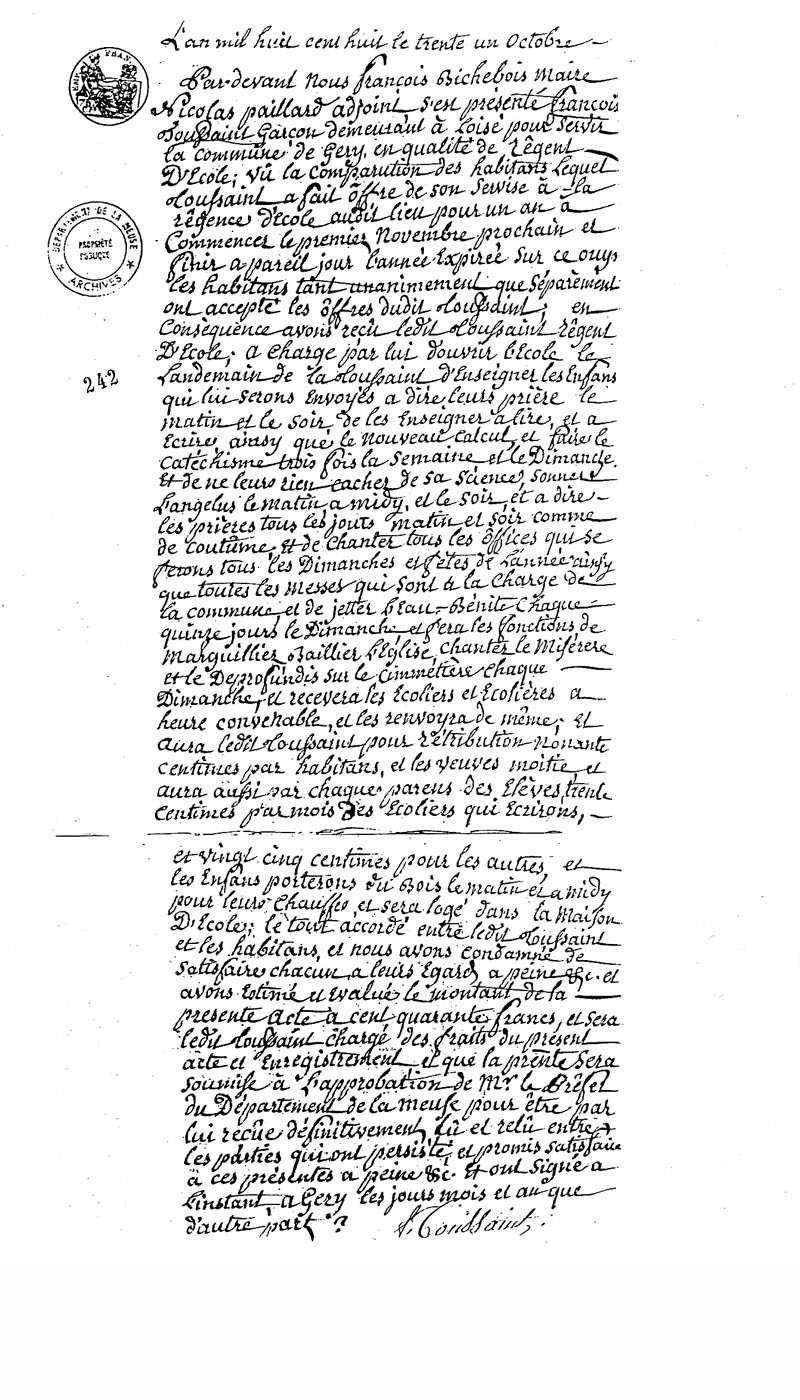 L'an mil huit cent huit le trente un Octobre
Par-devant Nous françois Bichebois Maire
Nicolas paillard adjoint, s'est présenté françois
Toussaint Garçon demeurant à Loisé pour servir
la commune de Gery, en qualité de Régent
D'Ecole; vû la comparution des habitans Lequel
Toussaint a fait ôffre de son servise à la
régence d'école audit lieu pour un an à
Commencer le premier Novembre prochain et
finir a pareil jour l'année Expirée sur ce ouys
les habitans tant unanimement que séparement
ont accepté les ôffres dudit Toussaint; en
Conséquence avons reçu ledit Toussaint Régent
D'Ecole; a Charge par lui d'ouvrir l'Ecole le
Landemain de la Toussaint d'Enseigner les Enfans
qui lui serons Envoyés a dire leurs prière le
matin et le soir, de les Enseigner a lire, et a
Ecrire, ainsy que le nouveau calcul, et faire le
Catéchisme trois fois la semaine et le Dimanche.
Et de ne leurs rien cacher de sa science, sonner
L'angelus le matin, a midy, et le soir, et a dire
les prieres tous les jours matin et soir comme
de coutume, Et de Chanter tous les ôffices qui se
ferons tous les Dimanches et fêtes de L'année ainsy
que toutes les Messes qui sont à la Charge de
la commune, et de jetter l'eau-Bénite Chaque
quinze jours le Dimanche et fera les fonctions de
Marguillier, Baillier l'Eglise, chanter le Miserere
et le Deprofundis sur le Cimmétière Chaque
Dimanche, et recevera les Ecoliers et Ecolières a
heure convenable, et les renvoyra de même; Et
aura ledit Toussaint pour rétribution Nonante
centimes par habitans, et les veuves moitié, et
aura aussi par chaque parens des Elèves, trente
Centimes par mois Des Ecoliers qui Ecrirons,
et vingt cinq centimes pour les autres, et
les Enfans porterons du Bois le matin et a midy
pour leurs Chauffes, et sera logé dans la Maison
D'Ecole; le tout accordé entre ledit Toussaint
et les habitans, et nous avons condamné de
Satisfaire chacun a leurs Egard, a peine &c. et
avons Estimé et Evalué le montant de la
présente Acte à cent quarante francs, et sera
ledit Toussaint chargé des fraits du présent
acte et Enregistrement et que la prénte sera
soumise à L'approbation de Mr le Préfet
du Département de la Meuse pour être par
lui reçûe définitivement, lû et relû entre
les parties qui ont persisté, et promis satisfaire
à ces présentes a peine &c. Et ont signé a
L'instant, a Gery les jours mois et an que
d'autre part
f. Toussaint,
DEPARTEMENT DE LA MEUSE
PROPRIÉTÉ
PUBLIQUE
ARCHIVES
242